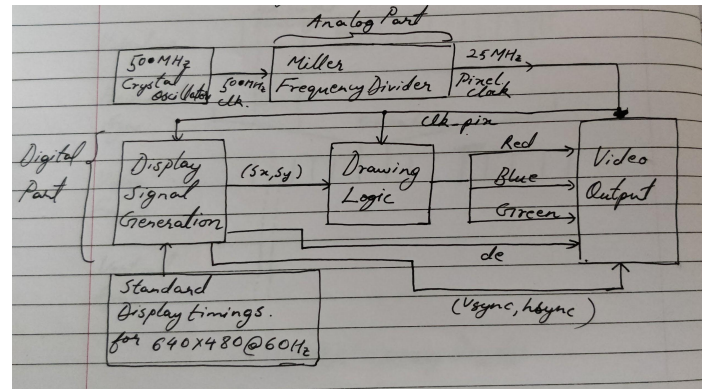 Analog Part
500MHz
Crystal
Oscillator
500MHz
clk.
Miller
Frequency Divider
25MHz
Pixel
clock
clk_pix
Digital
Part
Display
Signal
Generation
(Sx,Sy)
Drawing
Logic
Red
Blue
Green
Video
Output
de
(Vsync, hsync)
Standard
Display timings.
for 640X480@60Hz